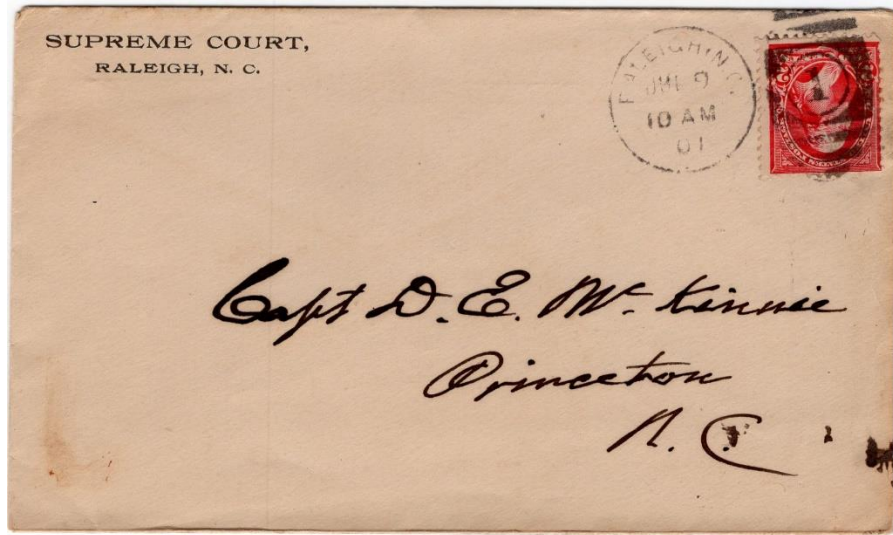 SUPREME COURT,
RALEIGH, N. C.
RALEIGH, N.C.
9
10 AM
01
1
Capt D. E. Mc. Kinnie
Princeton
N. C.